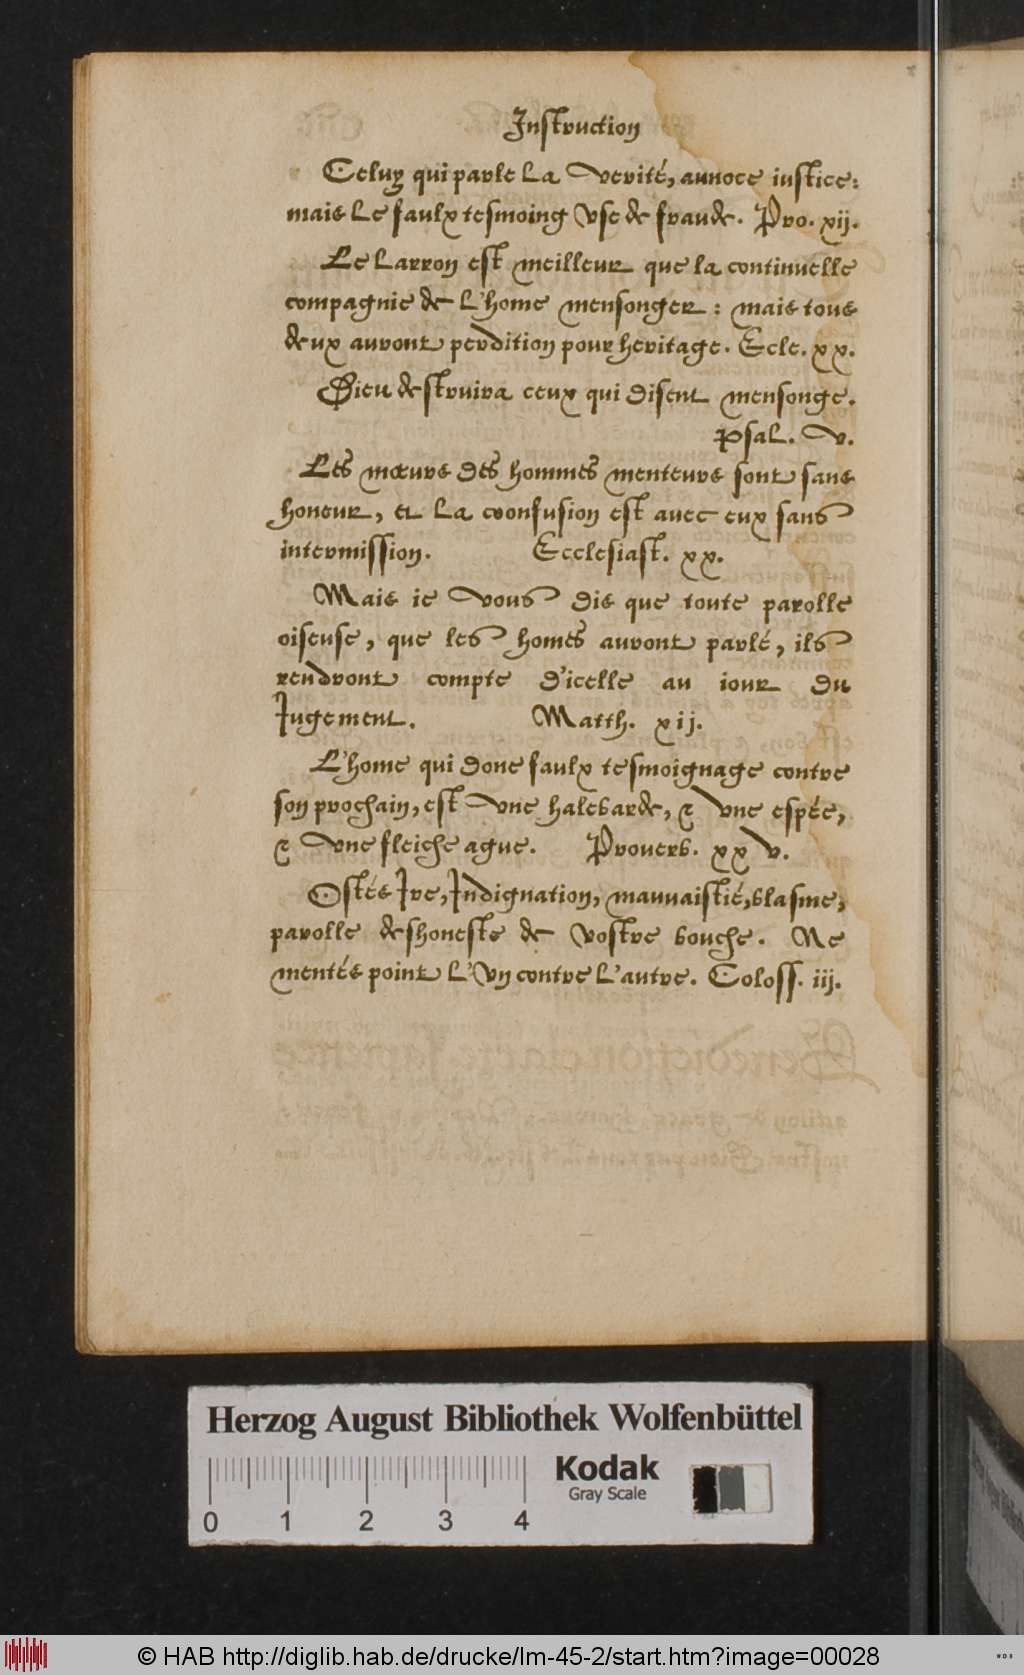 Instruction
Celuy qui parle La verité, annoce iustice:
mais Le faulx tesmoing Vse de fraude. Pro. xij.
Le Larron est meilleur que la continuelle
compagnie de L'home mensonger: mais tous
deux auront perdition pour heritage. Ecle. xx.
Dieu destruira ceux qui disent mensonge.
Psal. v.
Les mœurs des hommes menteurs sont sans
honeur, et La confusion est avec eux sans
intermission. Ecclesiast. xx.
Mais ie vous dis que toute parolle
oiseuse, que les homes auront parlé, ils
rendront compte d'icelle au iour du
Iugement. Matth. xij.
L'home qui done faulx tesmoignage contre
son prochain, est vne halebarde, & vne espée,
& vne fleiche ague. Prouerb. xxv.
Ostés Ire, Indignation, mauuaistié, blasme,
parolle deshoneste de vostre bouche. Ne
mentés point L'vn contre L'autre. Coloss. iij.
Herzog August Bibliothek Wolfenbüttel
0 1 2 3 4
Kodak
Gray Scale
© HAB http://diglib.hab.de/drucke/lm-45-2/start.htm?image=00028